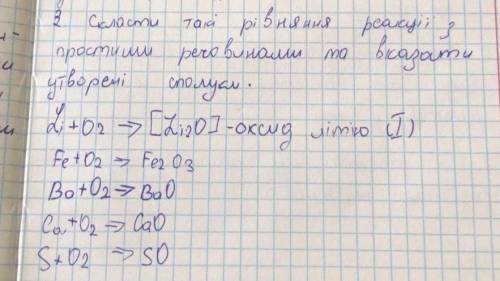 2 Скласти такі рівняння реакції з
простими речовинами та вказати
утворені сполуки.
Li + O2 ⇒ [Li2O] - оксид літію (I)
Fe + O2 ⇒ Fe2O3
Ba + O2 ⇒ BaO
Ca + O2 ⇒ CaO
S + O2 ⇒ SO